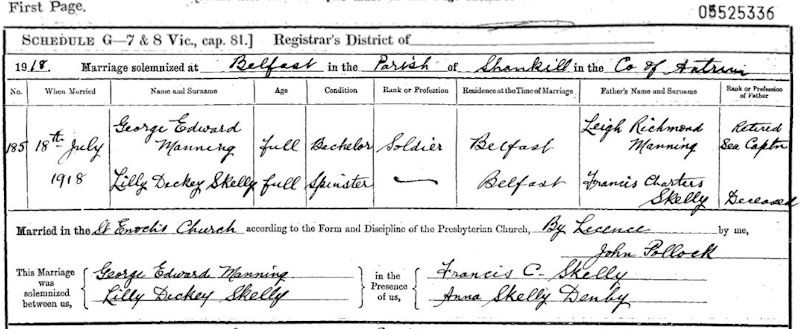 First Page.
05525336
SCHEDULE G—7 & 8 Vic., cap. 81.] Registrar's District of
1918. Marriage solemnized at Belfast in the Parish of Shankill in the Co of Antrim
No. When Married Name and Surname Age Condition Rank or Profession Residence at the Time of Marriage Father's Name and Surname Rank or Profession of Father
185 18th July George Edward Manning full Bachelor Soldier Belfast Leigh Richmond Manning Retired Sea Captn
1918 Lilly Dickey Skelly full Spinster — Belfast Francis Charters Skelly Deceased
Married in the St Enoch's Church according to the Form and Discipline of the Presbyterian Church, By Licence by me,
John Pollock
This Marriage was solemnized between us, George Edward Manning in the Presence of us, Francis C. Skelly
Lilly Dickey Skelly Anna Skelly Denby